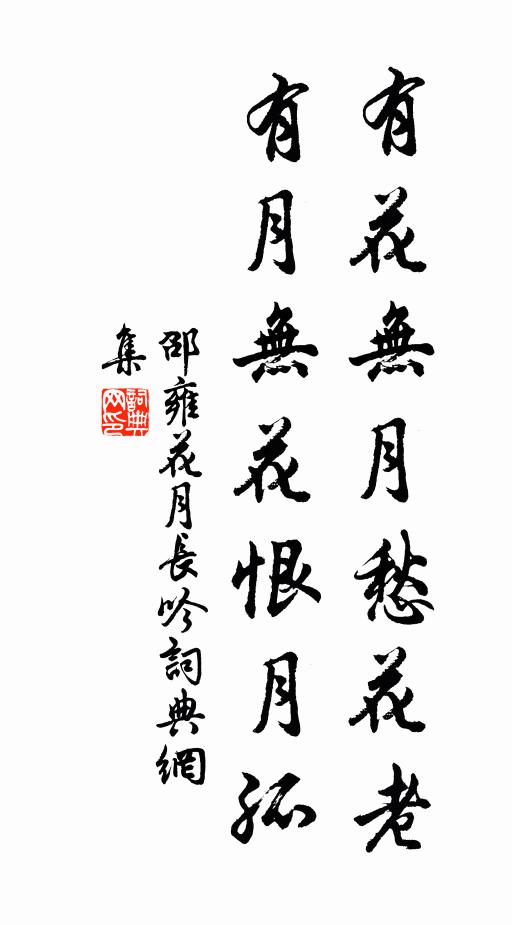 有花無月愁花老
有月無花恨月孤
邵雍花月長吟詞典網
集
詞典
网印